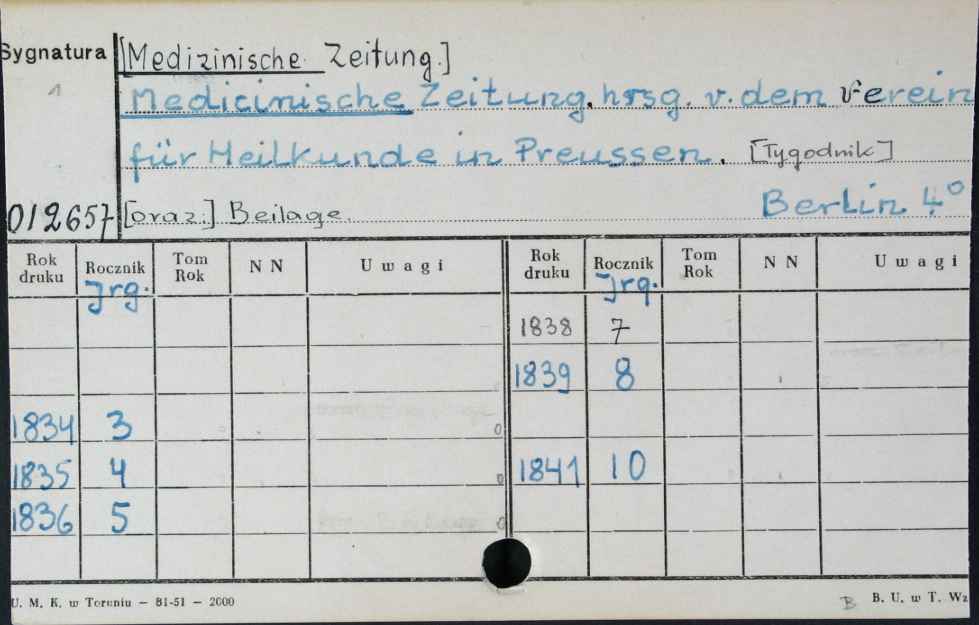 Sygnatura [Medizinische Zeitung.]
1 Medicinische Zeitung, hrsg. v. dem Verein
für Heilkunde in Preussen. [Tygodnik]
012657 [oraz:] Beilage. Berlin 4°
Rok druku Rocznik Tom Rok N N Uwagi Rok druku Rocznik Tom Rok N N Uwagi
Jrg. Jrg.
1838 7
1839 8
1834 3
1835 4 1841 10
1836 5
U. M. K. w Toruniu – 81-51 – 2000 B B. U. w T. Wz